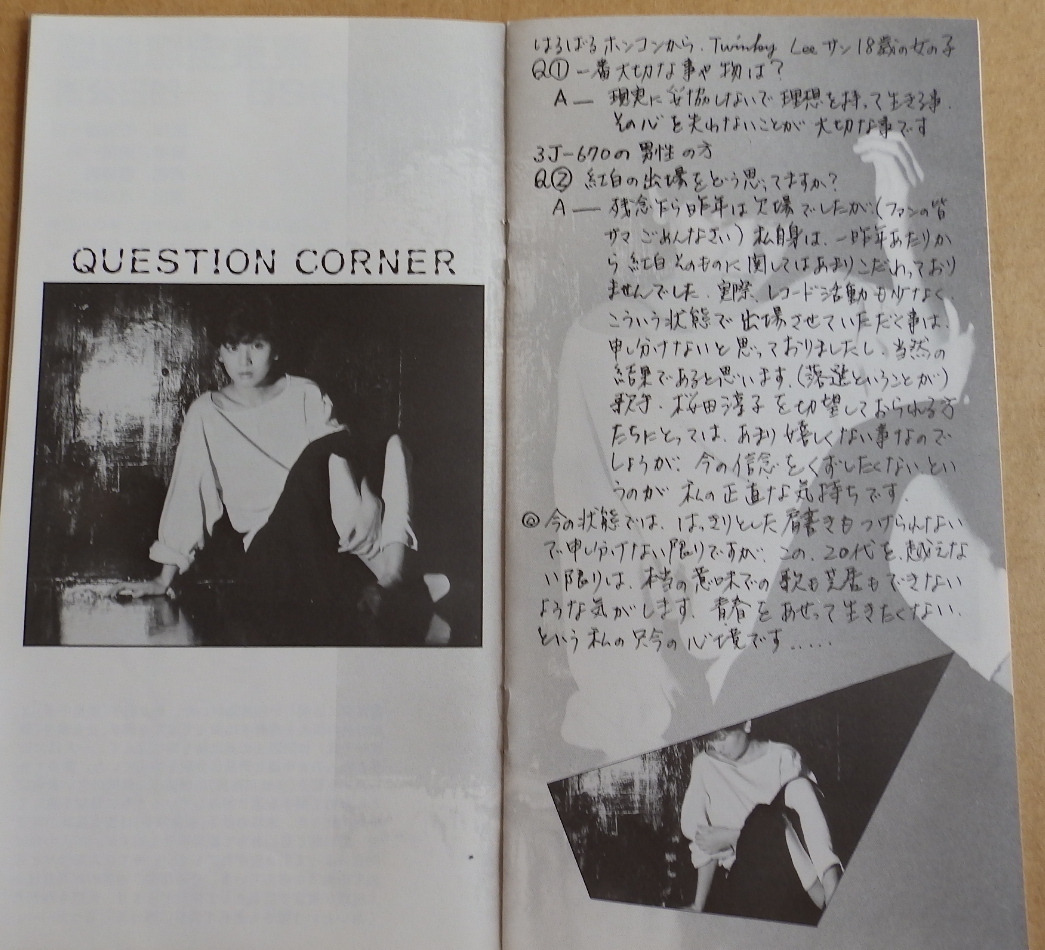 QUESTION CORNER
はるばるホンコンから、Twinky Lee サン 18歳の女の子
Q① 一番大切な事や物は?
A― 現実に妥協しないで理想を持って生きる事、
その心を失わないことが大切な事です
3J-670の男性の方
Q② 紅白の出場をどう思ってますか?
A― 残念乍ら昨年は欠場でしたが、(ファンの皆
サマ ごめんなさい)私自身は、一昨年あたりか
ら紅白そのものに関してはあまりこだわっており
ませんでした、実際、レコード活動も少なく、
こういう状態で出場させていただく事は、
申し分けないと思っておりましたし、当然の
結果であると思います、(落選ということが)
歌手、桜田淳子を切望しておられる方
たちにとっては、あまり嬉しくない事なので
しょうが、今の信念をくずしたくないとい
うのが私の正直な気持ちです、
◎今の状態では、はっきりとした肩書きもつけられない
で申し分けない限りですが、この、20代を越えな
い限りは、本当の意味での歌も芝居もできない
ような気がします、青春をあせって生きたくない、
という私の只今の心境です.....